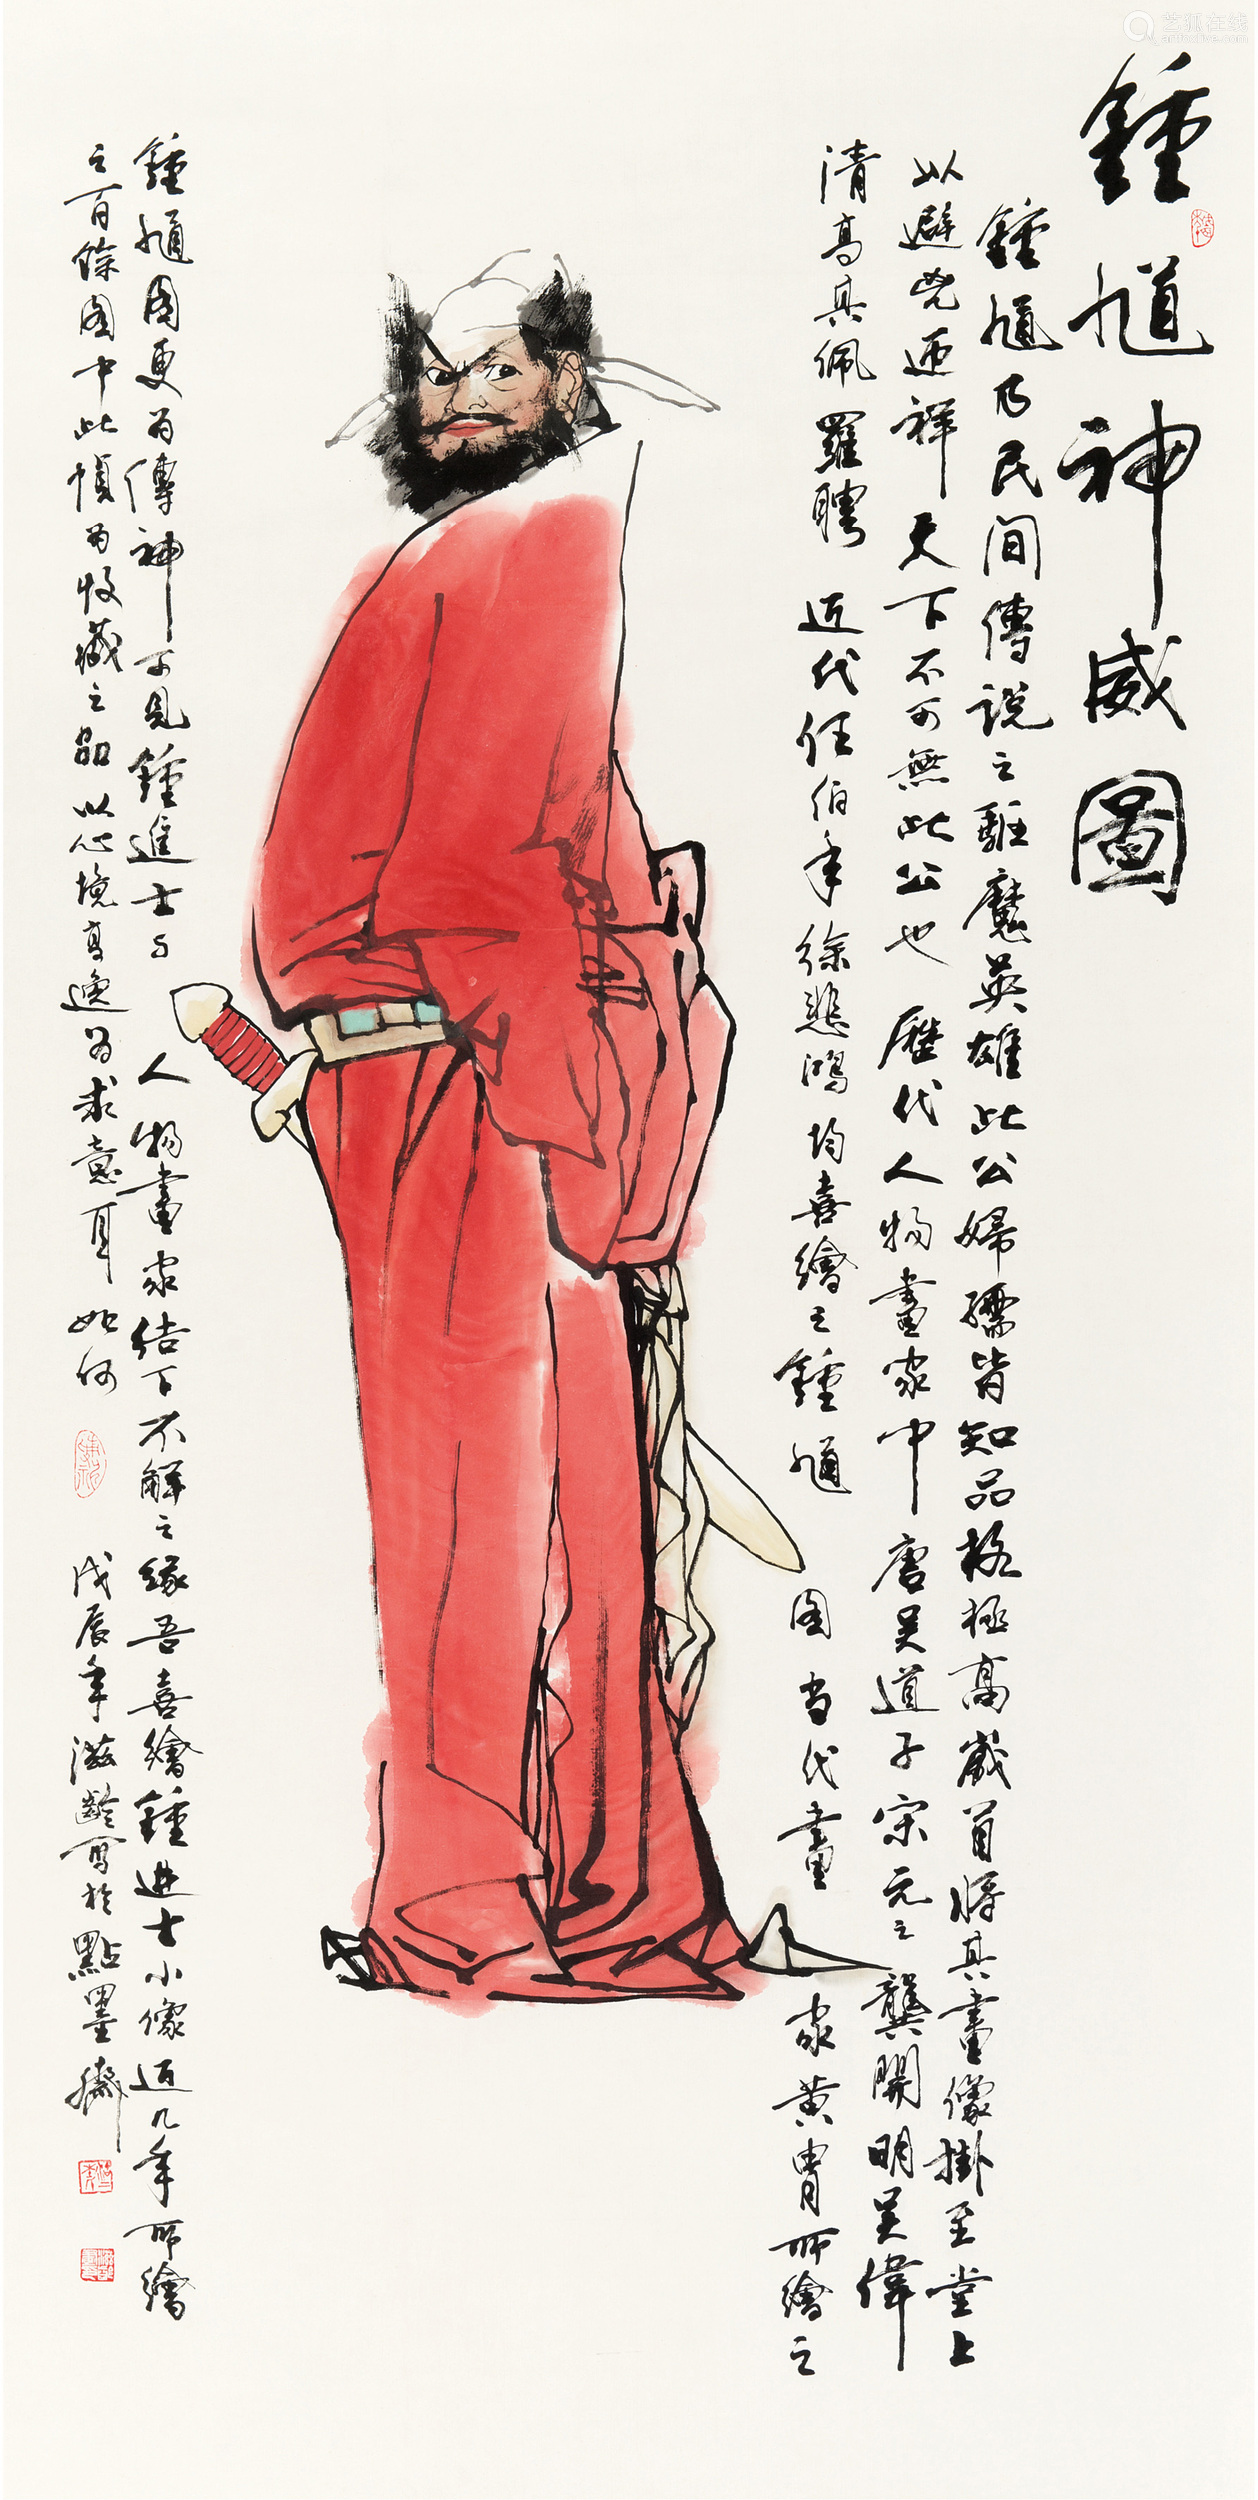 鍾馗神威圖
鍾馗乃民间傳説之驱魔英雄此公婦孺皆知品格極高歲首将其畫像掛至堂上
以避兇迎祥天下不可無此公也歷代人物畫家中唐吴道子宋元之龔開明吴偉
清高其佩羅聘近代任伯年徐悲鴻均喜繪之鍾馗图当代畫家黄胄所繪之
鍾馗图更为傳神可見鍾進士与人物畫家结下不解之缘吾喜繪鍾進士小像近几年所繪
之百餘图中此幀为收藏之品以心境高逸为求意耳如何
戊辰年滋齡写於點墨齋
艺狐在线
artfoxlive.com